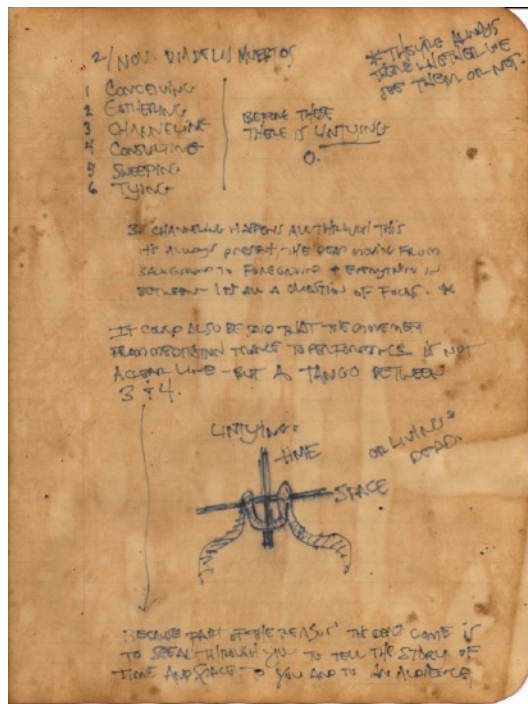 2/NOV. DIA DE LOS MUERTOS
* THEY'RE ALWAYS
THERE WHETHER WE
SEE THEM OR NOT.
1 CONCEIVING
2 GATHERING
3 CHANNELING
4 CONSULTING
5 SWEEPING
6 TYING
BEFORE THESE
THERE IS UNTYING
0.
3. CHANNELING HAPPENS ALL THROUGH THIS
IT'S ALWAYS PRESENT, THE DEAD MOVING FROM
BACKGROUND TO FOREGROUND & EVERYTHING IN
BETWEEN - IT'S ALL A QUESTION OF FOCUS. *
IT COULD ALSO BE SAID THAT THE MOVEMENT
FROM MEDITATION TRANCE TO PERFORMANCE IS NOT
A CLEAR LINE - BUT A TANGO BETWEEN
3 & 4.
UNTYING:
TIME
SPACE
OR LIVING &
DEAD.
BECAUSE PART OF THE REASON THE DEAD COME IS
TO SPEAK THROUGH YOU TO TELL THE STORIES OF
TIME AND SPACE TO YOU AND TO AN AUDIENCE